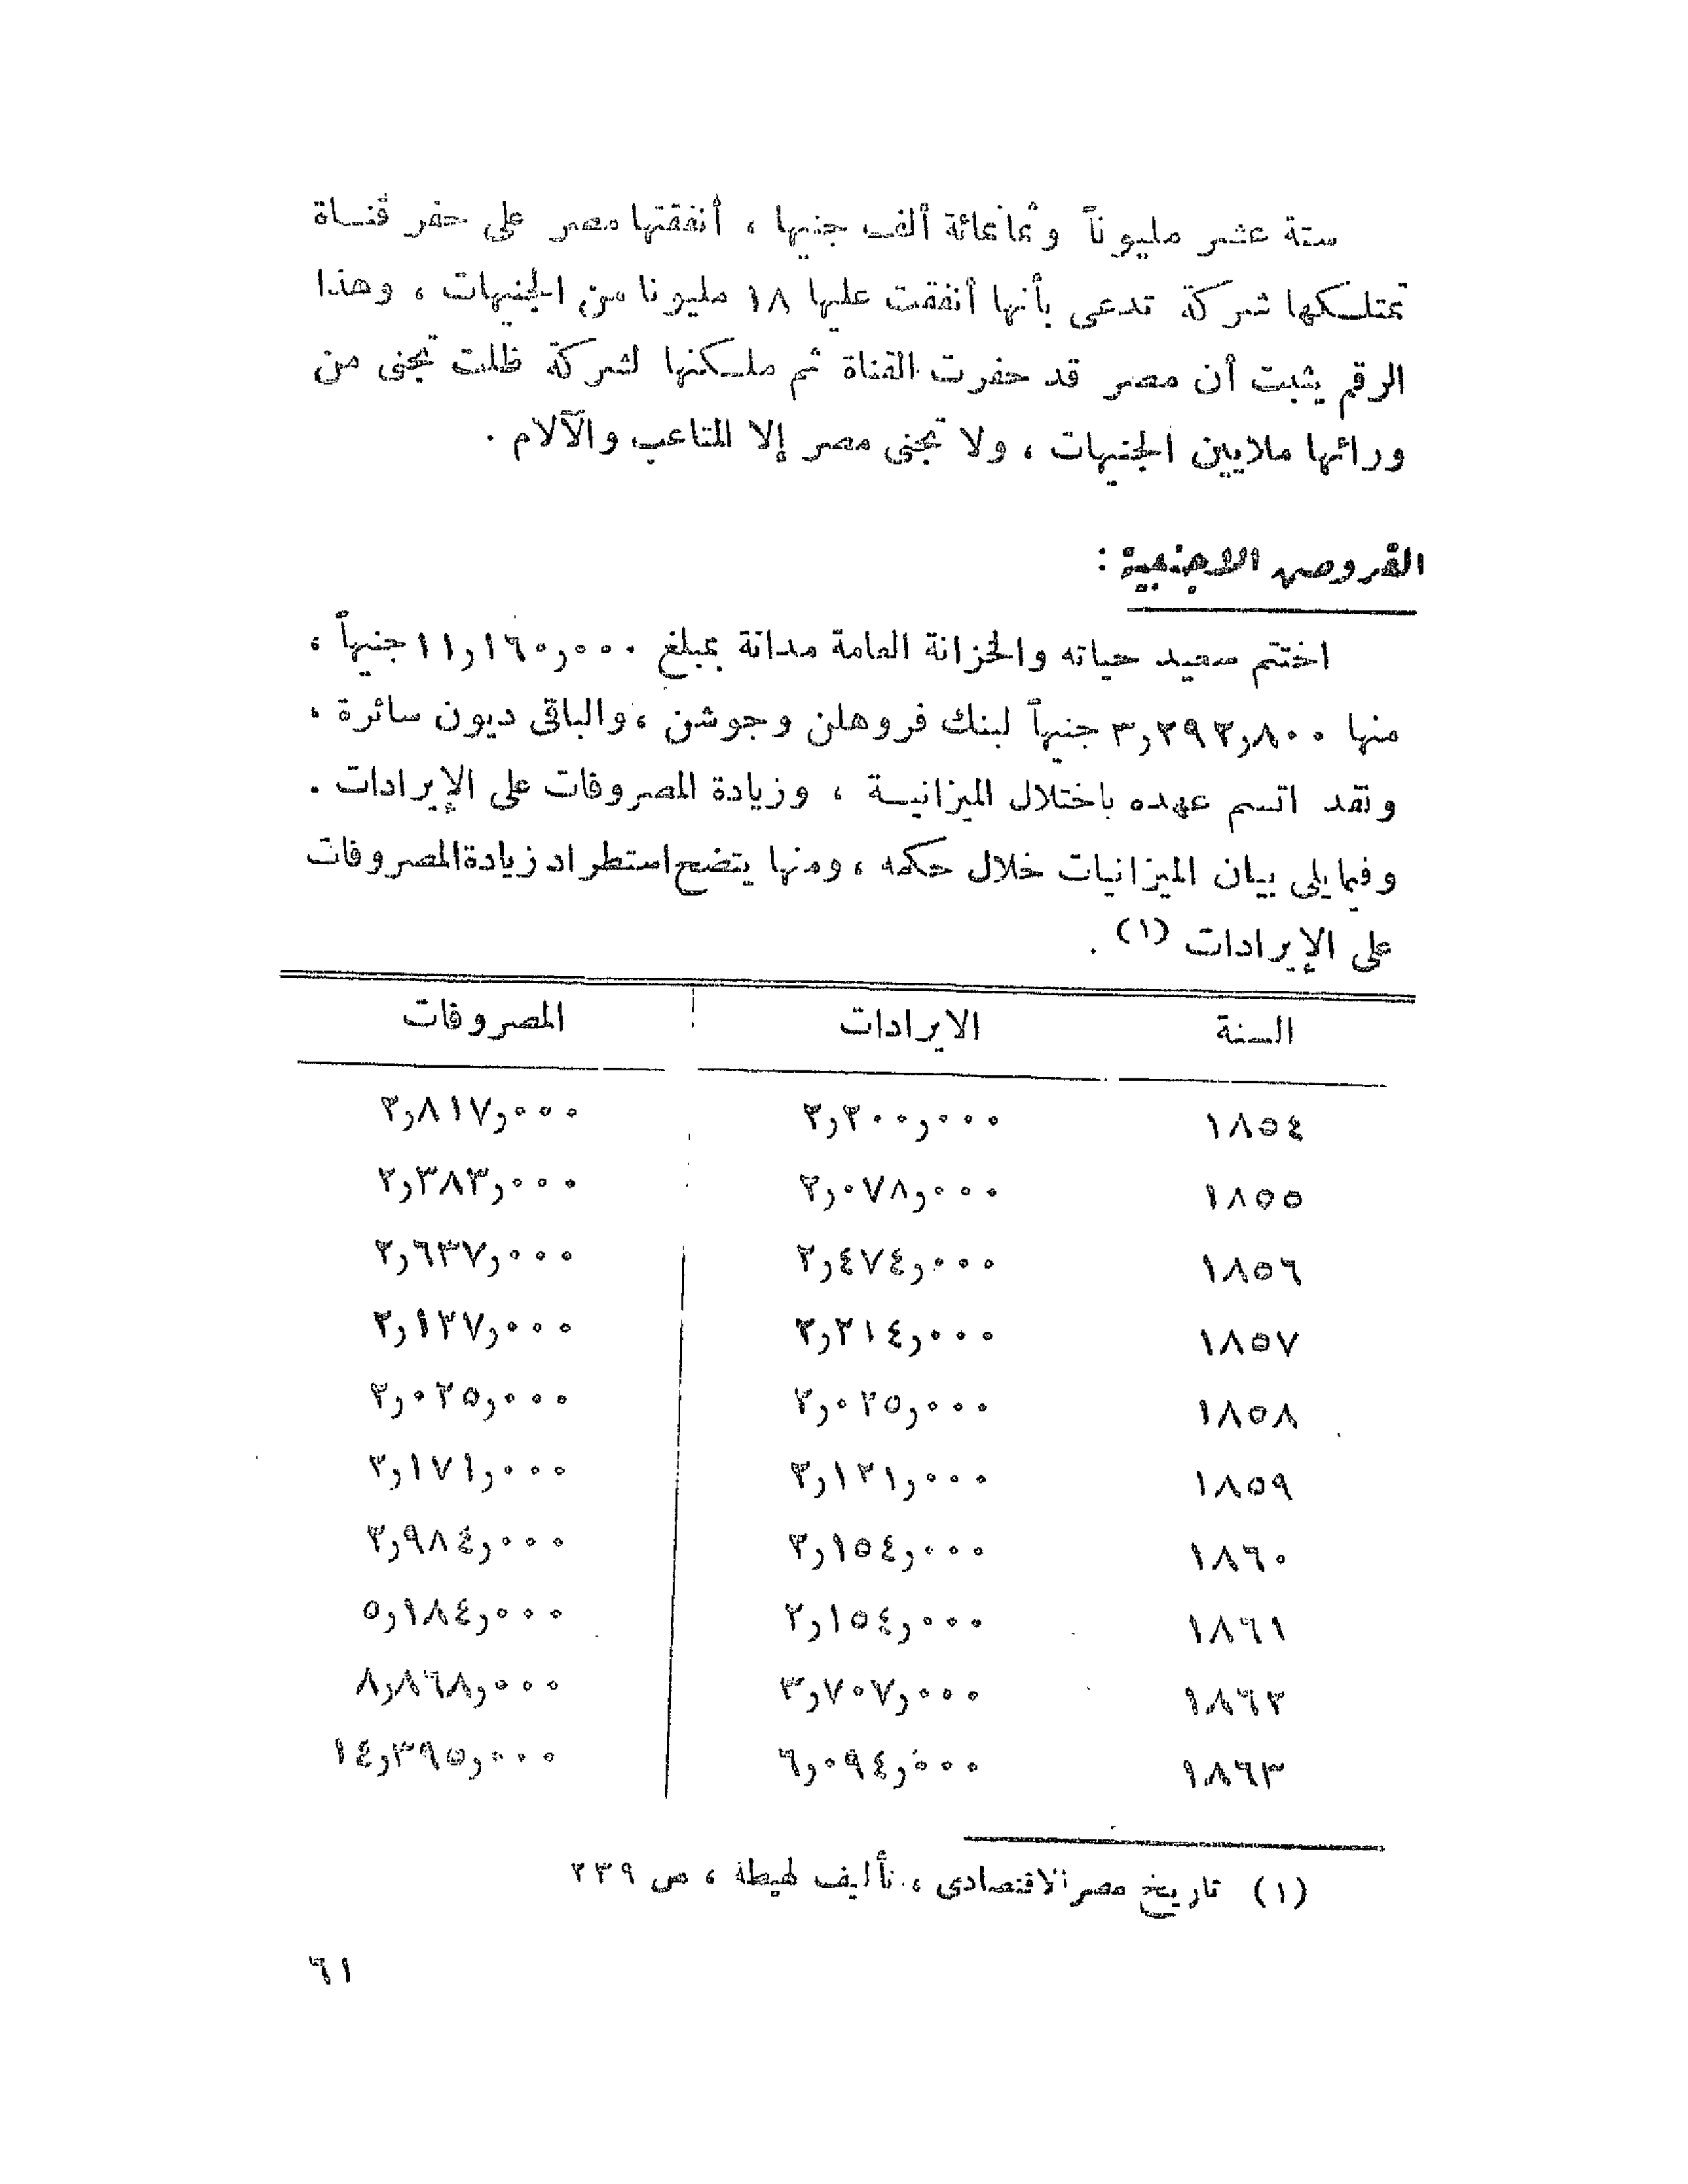 ستة عشر مليوناً وثمانمائة ألف جنيها ، أنفقتها مصر على حفر قنـاة
تمتلكها شركة تدعى بأنها أنفقت عليها ١٨ مليونا من الجنيهات ، وهذا
الرقم يثبت أن مصر قد حفرت القناة ثم ملكنها لشركة ظلت تجنى من
ورائها ملايين الجنيهات ، ولا تجنى مصر إلا المتاعب والآلام .
القروض الاجنبية :
اختتم سعيد حياته والخزانة العامة مدانة بمبلغ ١١,١٦٠,٠٠٠ جنيهاً ،
منها ٣,٢٩٢,٨٠٠ جنيهاً لبنك فروهلن وجوشن ، والباقى ديون سائرة .
ولقد اتسم عهده باختلال الميزانيـة ، وزيادة المصروفات على الإيرادات .
وفيما يلى بيان الميزانيات خلال حكمه ، ومنها يتضح استطراد زيادة المصروفات
على الإيرادات (١) .
السنة الايرادات المصروفات
١٨٥٤ ٢,٢٠٠,٠٠٠ ٢,٨١٧,٠٠٠
١٨٥٥ ٢,٠٧٨,٠٠٠ ٢,٣٨٣,٠٠٠
١٨٥٦ ٢,٤٧٤,٠٠٠ ٢,٦٣٧,٠٠٠
١٨٥٧ ٢,٢١٤,٠٠٠ ٢,١٢٧,٠٠٠
١٨٥٨ ٢,٠٢٥,٠٠٠ ٢,٠٢٥,٠٠٠
١٨٥٩ ٢,١٢١,٠٠٠ ٢,١٧١,٠٠٠
١٨٦٠ ٢,١٥٤,٠٠٠ ٢,٩٨٤,٠٠٠
١٨٦١ ٢,١٥٤,٠٠٠ ٥,١٨٤,٠٠٠
١٨٦٢ ٣,٧٠٧,٠٠٠ ٨,٨٦٨,٠٠٠
١٨٦٣ ٦,٠٩٤,٠٠٠ ١٤,٣٩٥,٠٠٠
(١) تاريخ مصر الاقتصادى ، تأليف لهيطة ، ص ٢٣٩
٦١